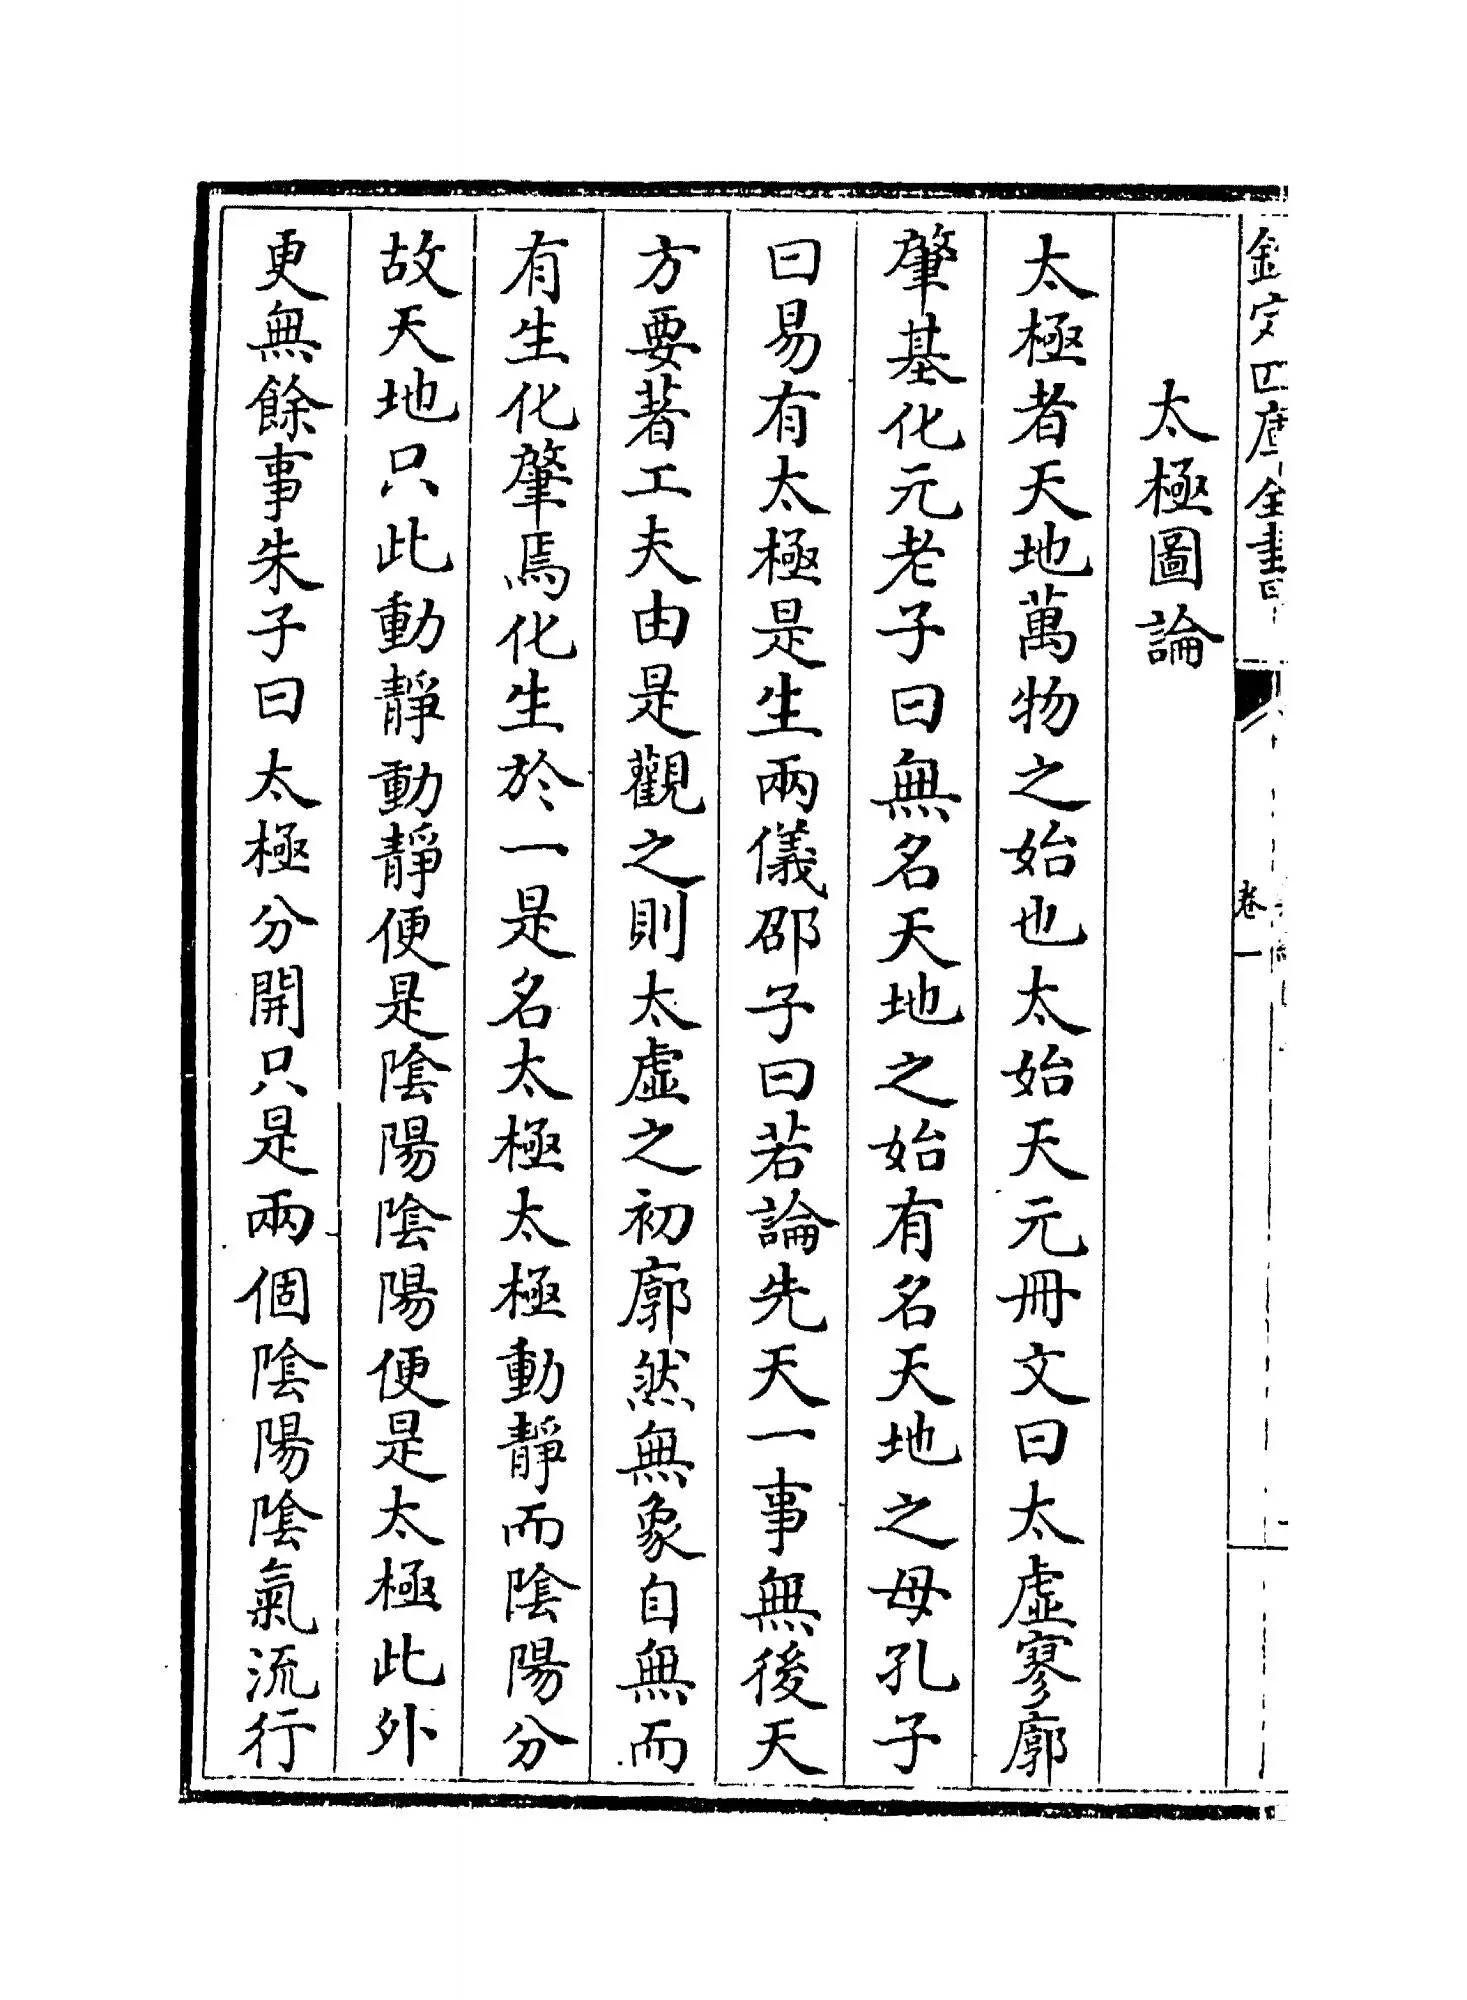 欽定四庫全書
卷一
太極圖論
太極者天地萬物之始也太始天元冊文曰太虛寥廓
肇基化元老子曰無名天地之始有名天地之母孔子
曰易有太極是生兩儀邵子曰若論先天一事無後天
方要著工夫由是觀之則太虛之初廓然無象自無而
有生化肇焉化生於一是名太極太極動靜而陰陽分
故天地只此動靜動靜便是陰陽陰陽便是太極此外
更無餘事朱子曰太極分開只是兩個陰陽陰氣流行